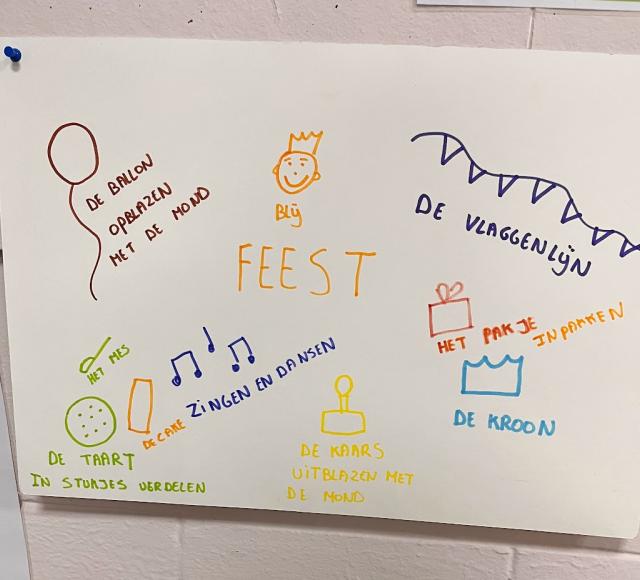 DE BALLON
OPBLAZEN
MET DE MOND
Blij
FEEST
DE VLAGGENLIJN
HET PAKJE INPAKKEN
DE KROON
HET MES
ZINGEN EN DANSEN
DE CAKE
DE TAART
IN STUKJES VERDELEN
DE KAARS
UITBLAZEN MET
DE MOND